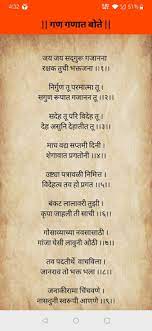 4:32
|| गण गणात बोते ||
जय जय सदगुरू गजानना
रक्षक तुची भक्तजना ||१||
निर्गुण तू परमात्मा तू |
सगुण रूपात गजानन तू ||२||
सदेह तू परि विदेह तू |
देह असुनि देहातीत तू ||३||
माघ वद्य सप्तमी दिनी
शेगावात प्रगटोनी ||४||
उष्ट्या पत्रावळी निमित्त |
विदेहत्व तव हो प्रगत ||५||
बंकट लालावरी तुझी |
कृपा जाहली ती साची ||६||
गोसाव्याच्या नवसासाठी |
गांजा घेसी लावुनी ओठी ||७||
तव पदतीर्थे वाचविला |
जानराव तो भक्त भला ||८||
जानकीरामा चिंचवणे |
नासवूनी स्वरूपी आणणे ||९||